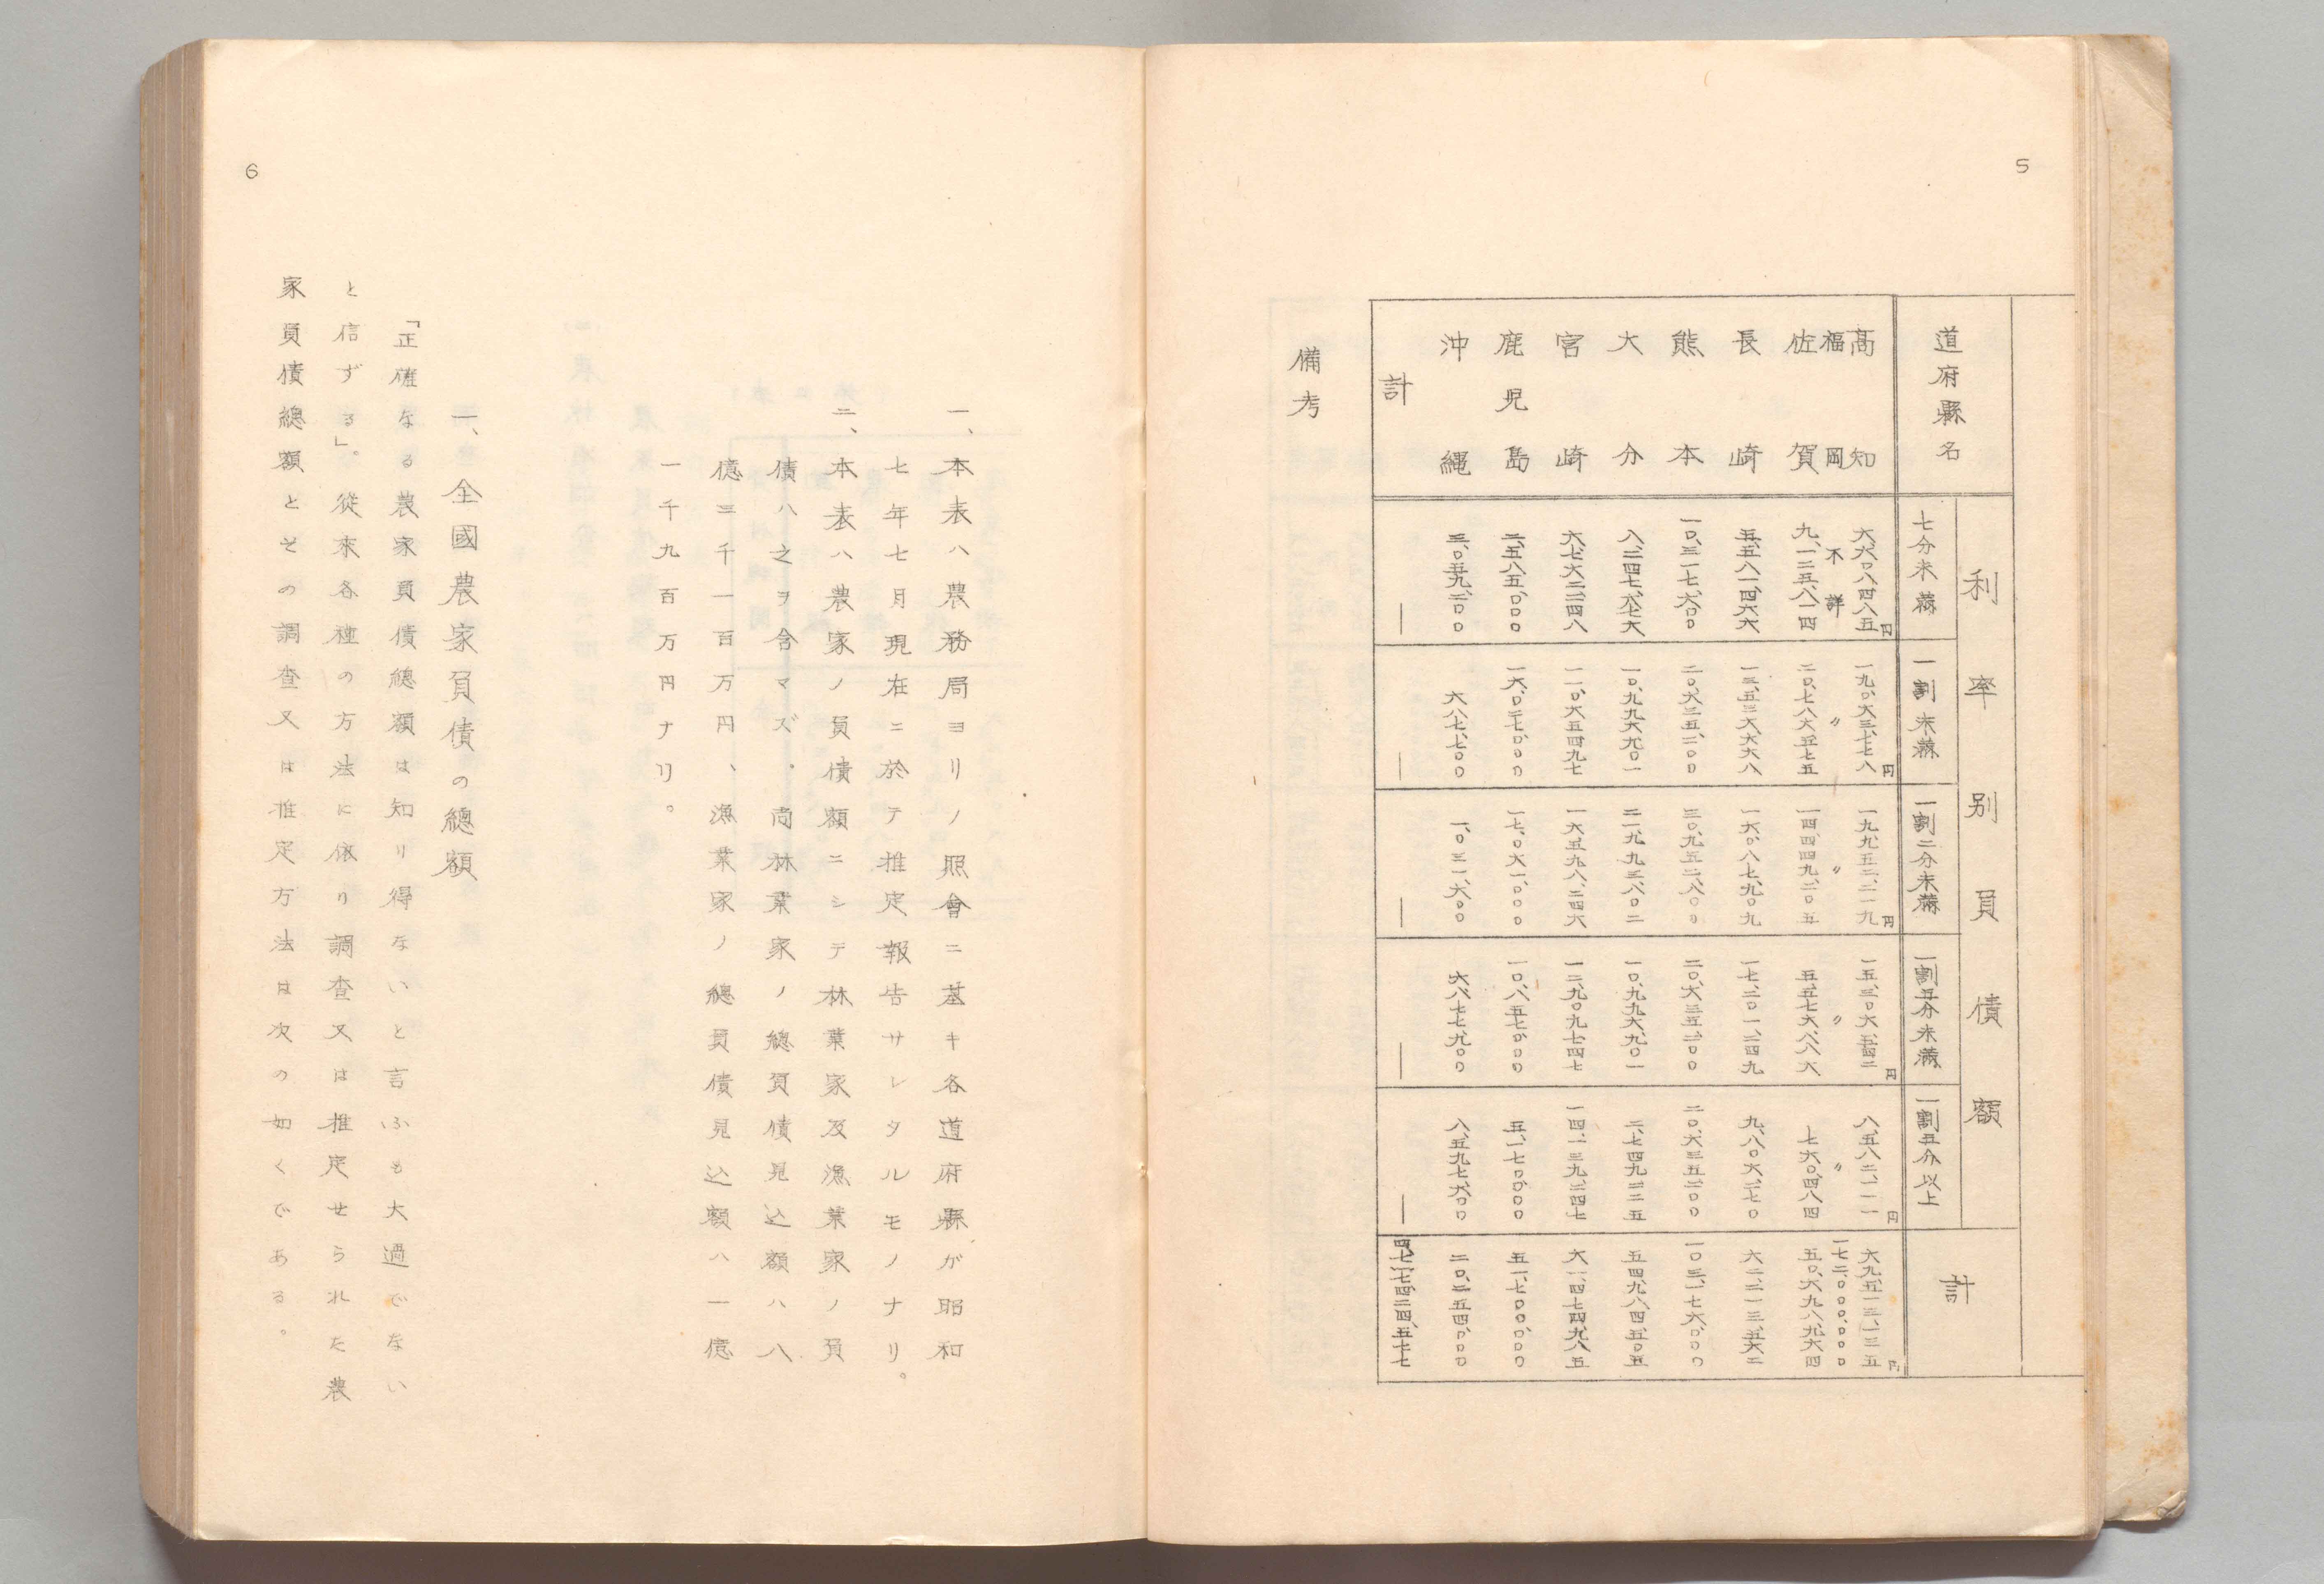 5
道府縣名
利率別負債額
七分未満
一割未満
一割二分未満
一割五分未満
一割五分以上
計
高知 六、六〇八、四八五円 一九、〇六三、七七八円 一九、九五二、二一九円 一五、三〇六、五四二円 八、五八二、一一一円 六九、五一三、一三五円
福岡 不詳 〃 〃 〃 〃 一七二、〇〇〇、〇〇〇
佐賀 九、一二五、八一四 二〇、七八六、五七五 一四、四四九、二〇五 五、五七六、八八六 七六〇、四八四 五〇、六九八、九六四
長崎 五、五八一、四六六 一三、五三六、六六八 一六、〇八七、九〇九 一七、二〇一、二四九 九、八〇六、二七〇 六二、二一三、五六二
熊本 一〇、三一七、六〇〇 二〇、六三五、二〇〇 三〇、九五二、八〇〇 二〇、六三五、二〇〇 二〇、六三五、二〇〇 一〇三、一七六、〇〇〇
大分 八、二四七、六七六 一〇、九九六、九〇一 二一、九九三、八〇二 一〇、九九六、九〇一 二、七四九、二二五 五四、九八四、五〇五
宮崎 六、七六二、二四八 一一、〇六五、四九七 一六、五九八、二四六 一二、九〇九、七四七 一四、一三九、二四七 六一、四七四、九八五
鹿児島 二、五八五、〇〇〇 一六、〇二七、〇〇〇 一七、〇六一、〇〇〇 一〇、八五七、〇〇〇 五、一七〇、〇〇〇 五一、七〇〇、〇〇〇
沖縄 三、〇五九、二〇〇 六八七、七〇〇 一、〇三一、六〇〇 六、八七七、九〇〇 八、五九七、六〇〇 二〇、二五四、〇〇〇
計 ― ― ― ― ― 四、七一七、四二四、五七七
備考
一、本表ハ農務局ヨリノ照會ニ基キ各道府縣が昭和
七年七月現在ニ於テ推定報告サレタルモノナリ。
二、本表ハ農家ノ負債額ニシテ林業家及漁業家ノ負
債ハ之ヲ含マズ。尚林業家ノ總負債見込額ハ八
億三千一百万円、漁業家ノ總負債見込額ハ一億
一千九百万円ナリ。
一、全國農家負債の總額
「正確なる農家負債總額は知り得ないと言ふも大過でない
と信ずる」。從來各種の方法に依り調査又は推定せられた農
家負債總額とその調査又は推定方法は次の如くである。
6